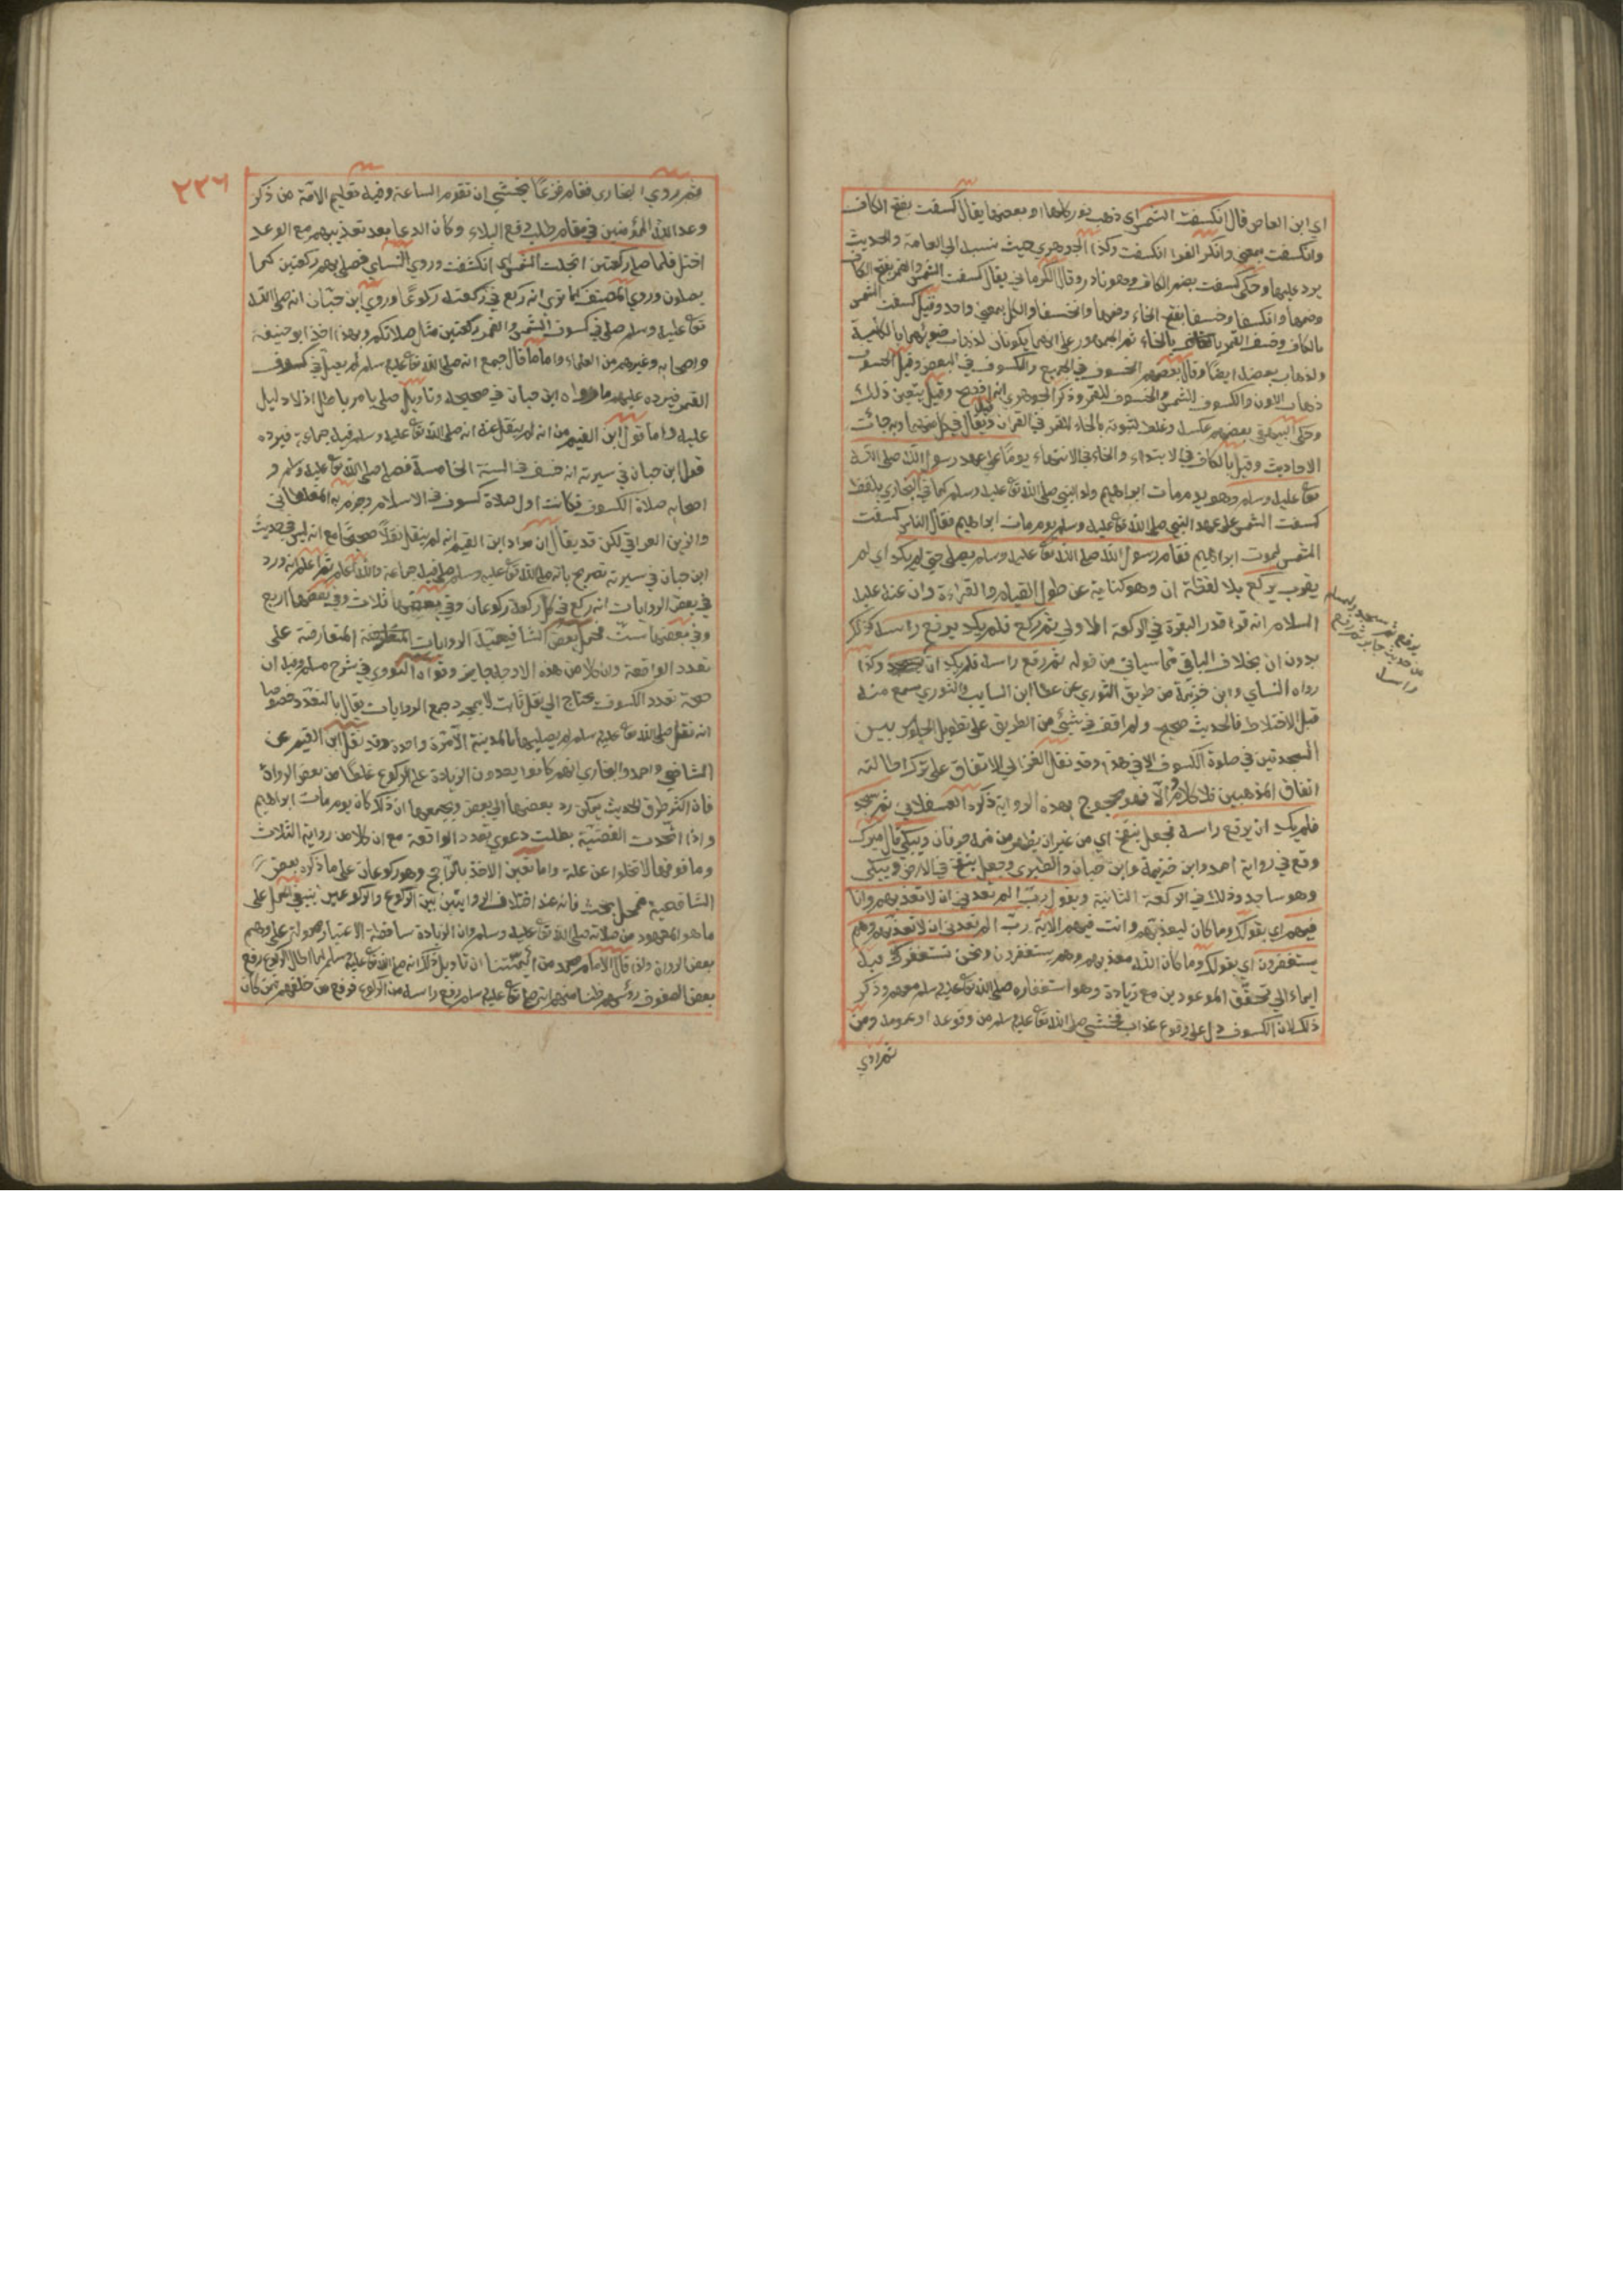 اي ابن العاص قال انكسفت الشمس اي ذهب نور كلها او بعضها يقال كسفت بفتح الكاف
وانكسفت بمعني وانكر الفرا انكسفت وكذا الجوهري حيث نسبه الي العامة والحديث
يرد عليها وحكي كسفت بضم الكاف وهو نادر وقال الكرماني يقال كسفت الشمس والقمر بفتح الكاف
وضمها وانكسفا وخسفا بفتح الخاء وضمها وانخسفا والكل بمعني واحد وقيل كسفت الشمس
بالكاف وخسف القمر بالخاء ثم الجمهور علي انهما يكونان لذهاب ضوئهما بالكلية
ولذهاب بعضه ايضا وقال بعضهم الخسوف في الجميع والكسوف في البعض وقيل الخسوف
ذهاب اللون والكسوف للشمس والخسوف للقمر وذكر الجوهري انه افصح وقيل يتعين ذلك
وحكي عن بعضهم عكسه وغلط لثبوته بالخاء للقمر في القران وقيل يقال في كل منهما وبه جائت
الاحاديث وقيل بالكاف في الابتداء والخاء في الانتهاء يوما علي عهد رسول الله صلي الله
تعا عليه وسلم وهو يوم مات ابراهيم ولد النبي صلي الله تعا عليه وسلم كما في البخاري بلفظ
كسفت الشمس علي عهد النبي صلي الله تعا عليه وسلم يوم مات ابراهيم فقال الناس كسفت
الشمس لموت ابراهيم فقام رسول الله صلي الله تعا عليه وسلم يصلي حتي لم يكد اي لم
يقرب يركع بلا لفظة ان وهو كناية عن طول القيام والقراءة وان عنه عليه
السلام انه قرا قدر البقرة في الركعة الاولي ثم ركع فلم يكد يرفع راسه كذلك
بدون ان بخلاف الباقي مما سياتي من قوله ثم رفع راسه فلم يكد ان وكذا
رواه النساي وابن خزيمة من طريق الثوري عن عطا ابن السايب والثوري سمع منه
قبل الاختلاط فالحديث صحيح ولم اقف في شيئ من الطريق علي تطويل الجلوس بين
السجدتين في صلوة الكسوف الا في هذا وقد نقل الغزالي الاتفاق علي ترك اطالته
اتفاق المذهبين فلا كلام والا فهو محجوج بهذه الرواية ذكره العسقلاني ثم سجد
فلم يكد ان يرفع راسه فجعل ينفخ اي من غير ان يظهر من فمه حرفان ويبكي قال ميرك
وقع في رواية احمد وابن خزيمة وابن حبان والطبري وجعل ينفخ في الارض ويبكي
وهو ساجد وذلك في الركعة الثانية ويقول رب الم تعدني ان لا تعذبهم وانا
فيهم اي بقولك وما كان ليعذبهم وانت فيهم الاية رب الم تعدني ان لا تعذبهم وهم
يستغفرون اي بقولك وما كان الله معذبهم وهم يستغفرون ونحن نستغفرك فيه
ايماء الي تحقق الموعودين مع زيادة وهو استغفاره صلي الله تعا عليه وسلم معهم وذكر
ذلك لان الكسوف دل علي وقوع عذاب فخشي صلي الله تعا عليه وسلم من وقوعه او عمومه ومن
ثم روي
يرفع ثم سجد
من حديث جابر ثم رفع
راسه
٢٢٦
ثم روي البخاري فقام فزعا يخشي ان تقوم الساعة وفيه تعليم الامة من ذكر
وعد الله المؤمنين في مقام طلب دفع البلاء وكان الدعا بعد تعذيبهم مع الوعد
فلما صلي ركعتين انجلت الشمس اي انكشفت وروي النساي فصلي بهم ركعتين كما
يصلون وروي المصنف كما تري انه ركع في ركعته ركوعا وروي ابن حبان انه صلي الله
تعا عليه وسلم صلي في كسوف الشمس والقمر ركعتين مثل صلاتكم وبهذا اخذ ابو حنيفة
واصحابه وغيرهم من العلماء واما ما قال جمع انه صلي الله تعا عليه وسلم لم يصل في كسوف
القمر فيرده عليهم ما رواه ابن حبان في صحيحه وتاويل صلي بامر باطل اذ لا دليل
عليه واما قول ابن القيم من انه لم ينقل عنه انه صلي الله تعا عليه وسلم فيه جماعة فيرده
قول ابن حبان في سيرته انه خسف في السنة الخامسة فصلي صلي الله تعا عليه وسلم و
اصحابه صلاة الكسوف فكانت اول صلاة كسوف في الاسلام وجزم به المغلطاني
والزين العراقي لكن قد يقال ان مراد ابن القيم انه لم ينقل نقلا صحيحا مع انه ليس في حديث
ابن حبان في سيرته تصريح بانه صلي الله تعا عليه وسلم صلي فيه جماعة والله اعلم ثم اعلم انه ورد
في بعض الروايات انه ركع في كل ركعة ركوعان وفي بعضها ثلاث وفي بعضها اربع
وفي بعضها ست فحمل بعض الشافعية الروايات المتعارضة علي
تعدد الواقعة وان كلا من هذه الاوجه جايز وقواه النووي في شرح مسلم وفيه ان
صحة تعدد الكسوف يحتاج الي نقل ثابت لا بمجرد جمع الروايات يقال بالتعدد خصوصا
انه نقل صلي الله تعا عليه وسلم لم يصليها بالمدينة الا مرة واحدة وقد نقل ابن القيم عن
الشافعي واحمد والبخاري انهم كانوا يعدون الزيادة علي الركوع غلطا من بعض الرواة
فان اكثر طرق الحديث يمكن رد بعضها الي بعض ويجمعها ان ذلك كان يوم مات ابراهيم
واذا اتحدت القضية بطلت دعوي تعدد الواقعة مع ان كلا من رواية الثلاث
وما فوقها لا تخلوا عن علة واما تعين الاخذ بالراجح وهو ركوعان علي ما ذكره بعض
الشافعية فمحل بحث فانه عند اختلاف الروايتين بين الركوع والركوعين ينبغي الحمل علي
ما هو المعهود من صلاته صلي الله تعا عليه وسلم وان الزيادة ساقطة الاعتبار محمولة علي وهم
بعض الرواة ولذا قال الامام محمد من ائمتنا ان تاويل ذلك انه صلي الله تعا عليه وسلم لما اطال الركوع رفع
بعض الصفوف رؤسهم ظنا منهم انه صلي تعا عليه وسلم رفع راسه من الركوع فرفع من خلفهم فمن كان